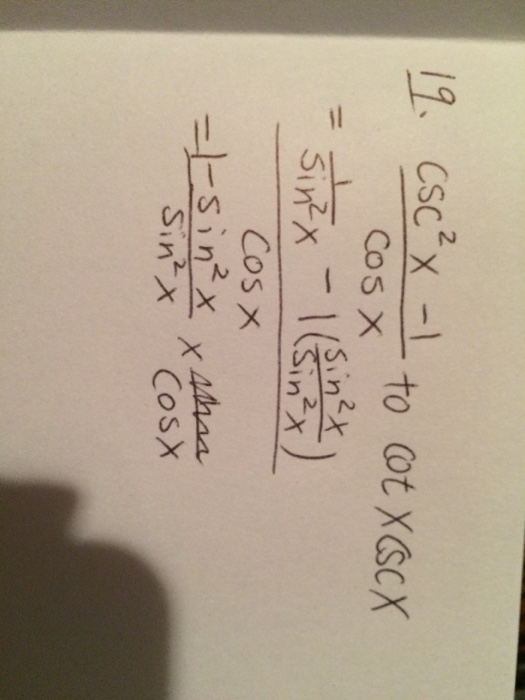 19. csc²x - 1 / cos x to cot x csc x
= 1/sin²x - 1(sin²x/sin²x)
cos x
= 1 - sin²x / sin²x x cos x